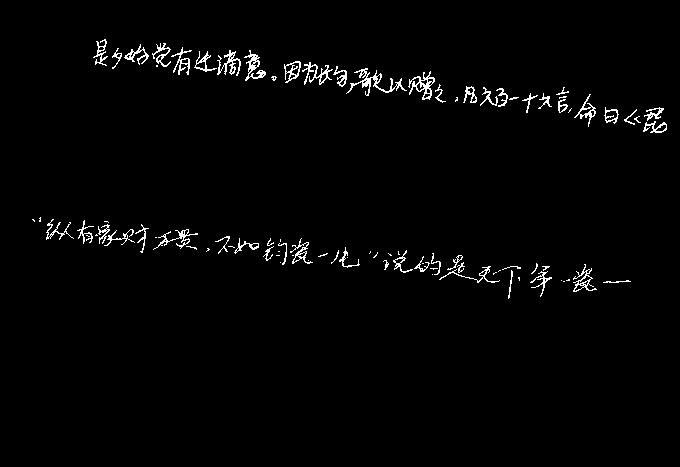 是夕始觉有迁谪意。因为长句,歌以赠之,凡六百一十六言,命曰《琵
“纵有家财万贯,不如钧瓷一片”说的是天下第一瓷—